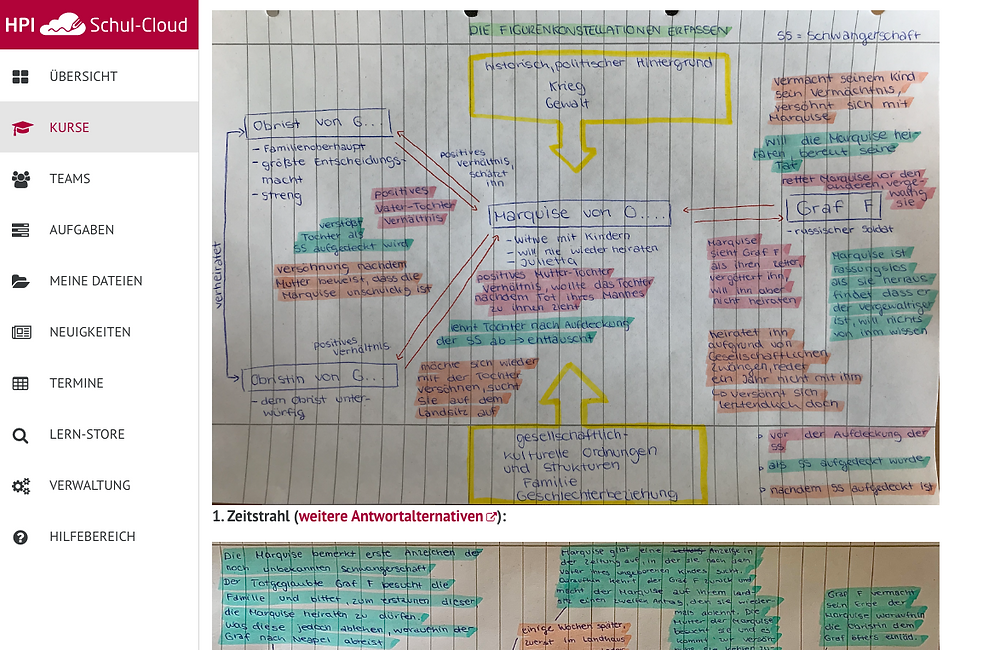 HPI Schul-Cloud
ÜBERSICHT
KURSE
TEAMS
AUFGABEN
MEINE DATEIEN
NEUIGKEITEN
TERMINE
LERN-STORE
VERWALTUNG
HILFEBEREICH
DIE FIGURENKONSTELLATIONEN ERFASSEN
SS = Schwangerschaft
historisch, politischer Hintergrund
Krieg
Gewalt
vermacht seinem Kind
sein Vermächtnis,
versöhnt sich mit
Marquise
will die Marquise hei-
raten bereut seine
Tat
rettet Marquise vor den
anderen, verge-
waltig
sie
Obrist von G...
- Familienoberhaupt
- größte Entscheidungs-
macht
- streng
positives
verhältnis,
schätzt
ihn
positives
Vater-Tochter
verhältnis
verstößt
Tochter als
SS aufgedeckt wird
versöhnung nachdem
Mutter beweist, dass die
Marquise unschuldig ist
verheiratet
Marquise von O....
- Witwe mit Kindern
- will nie wieder heiraten
- Julietta
positives Mutter-Tochter
verhältnis, wollte das Tochter
nachdem Tot ihres Mannes
zu ihnen zieht
lennt Tochter nach Aufdeckung
der SS ab → enttäuscht
Graf F
- russischer Soldat
Marquise
sieht Graf F
als ihren retter,
vergöttert ihn,
will ihn aber
nicht heiraten
Marquise ist
fassungslos
als sie heraus-
findet dass er
der vergewaltiger
ist, will nichts
von ihm wissen
heiratet ihn
aufgrund von
Gesellschaftlichen
Zwängen, redet
ein Jahr nicht mit ihm
↳ versöhnt sich
letztendlich doch
positives
verhältnis
Obristin von G...
- dem Obrist unter-
würfig
möchte sich wieder
mit der Tochter
versöhnen, sucht
sie auf dem
Landsitz auf
gesellschaftlich-
kulturelle Ordnungen
und Strukturen
Familie
Geschlechterbeziehung
vor der Aufdeckung der
SS
als SS aufgedeckt wurde
nachdem SS aufgedeckt ist
1. Zeitstrahl (weitere Antwortalternativen):
Die Marquise bemerkt erste Anzeichen der
noch unbekannten Schwangerschaft
Der Totgeglaubte Graf F besucht die
Familie und bittet, zum erstaunen dieser
die Marquise heiraten zu dürfen.
was diese jedoch ablehen, woraufhin der
Graf nach Neapel abreist
Marquise gibt eine Anzeige in
der Zeitung auf, in der sie nach dem
Vater ihres ungeborenen Kindes sucht.
Daraufhin kehrt der Graf F zurück und
macht der Marquise auf ihrem Land-
sitz einen zweiten Antrag, den sie wieder-
mals ablehnt. Die
Mutter der Marquise
besucht sie und es
kommt zur versöh-
einige Wochen später,
zuerst im Landhaus
Graf F vermacht
sein Erbe der
Marquise woraufhin
die Obristin den
Graf öfters einläd.